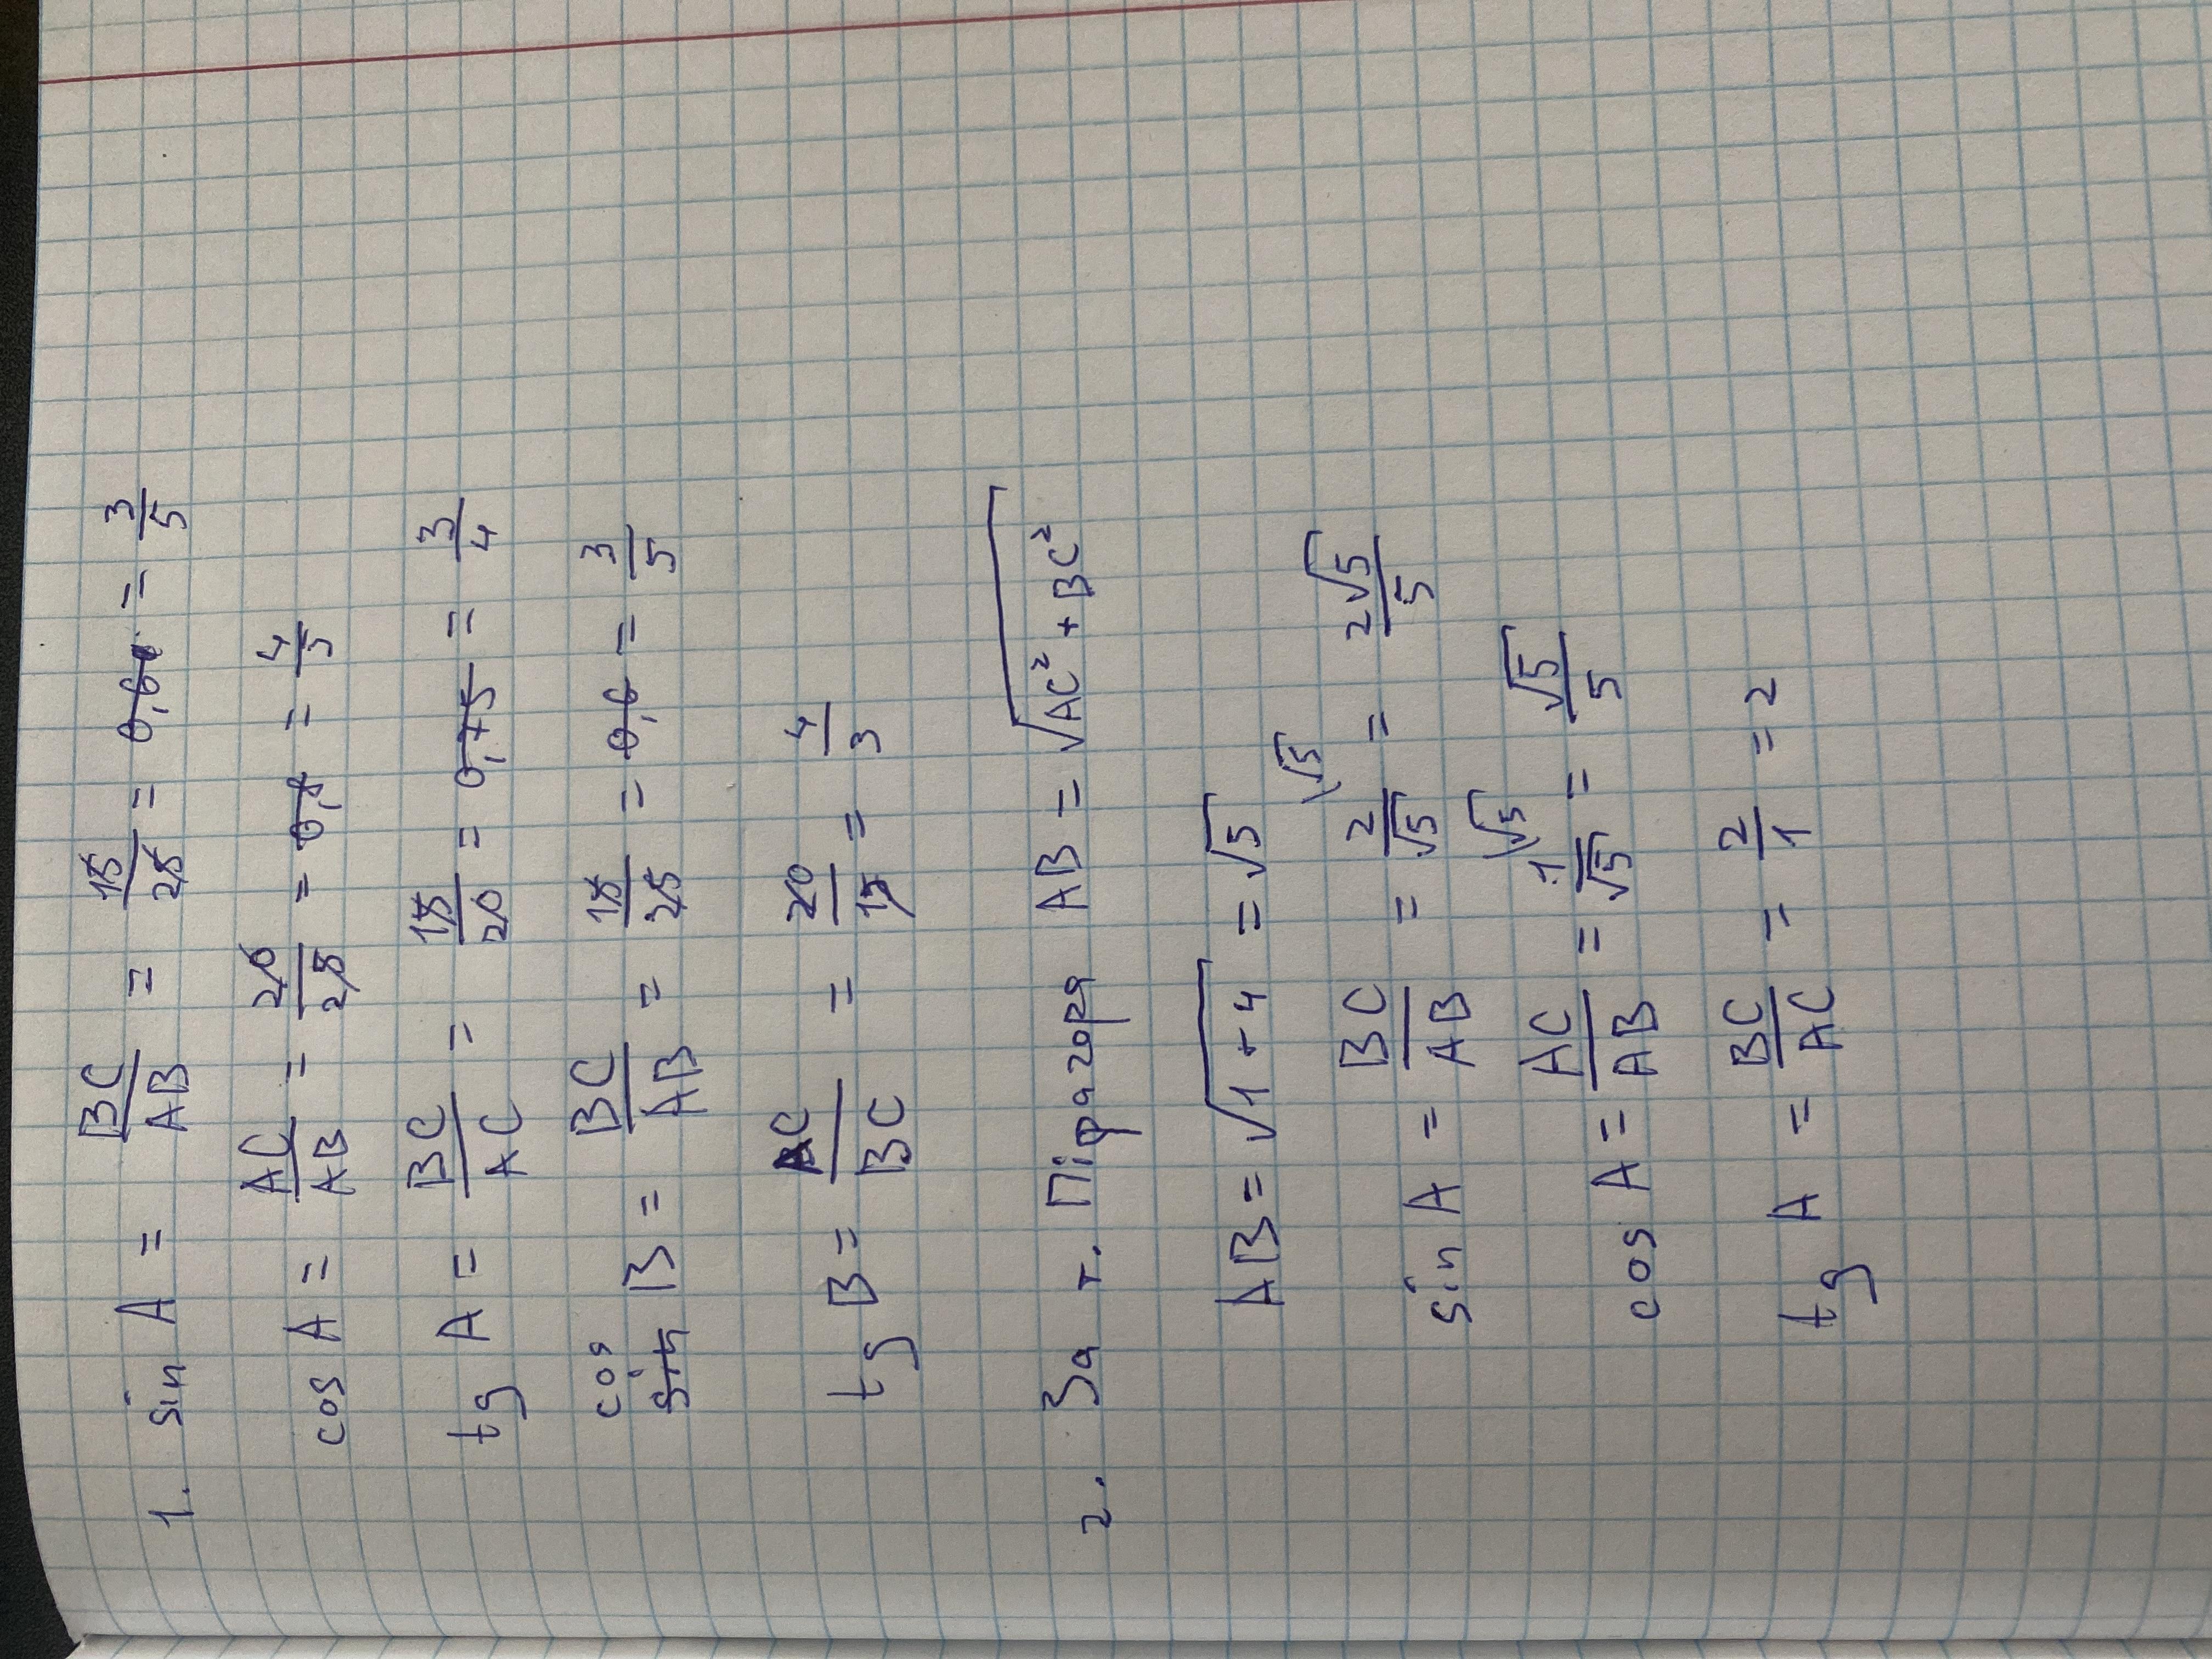 1. sin A = BC/AB = 15/25 = 0,6 = 3/5
cos A = AC/AB = 20/25 = 0,8 = 4/5
tg A = BC/AC = 15/20 = 0,75 = 3/4
cos sin B = BC/AB = 15/25 = 0,6 = 3/5
tg B = AC/BC = 20/15 = 4/3
2. За т. Піфагора AB = √AC² + BC²
AB = √1 + 4 = √5
sin A = BC/AB = 2/√5 √5 = 2√5/5
cos A = AC/AB = 1/√5 √5 = √5/5
tg A = BC/AC = 2/1 = 2